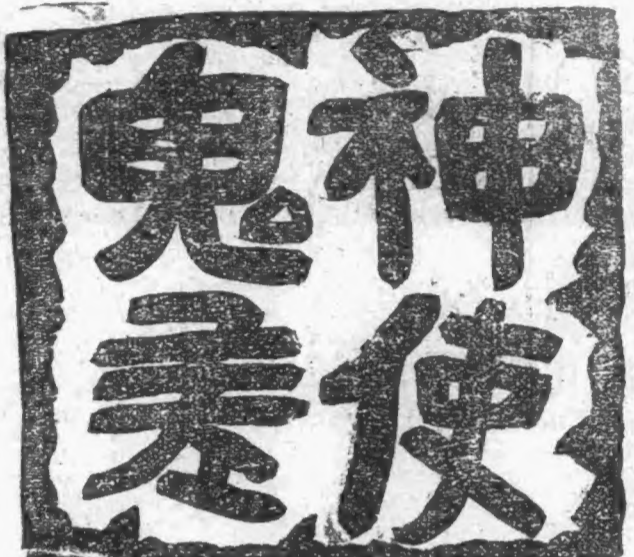 神使
鬼差